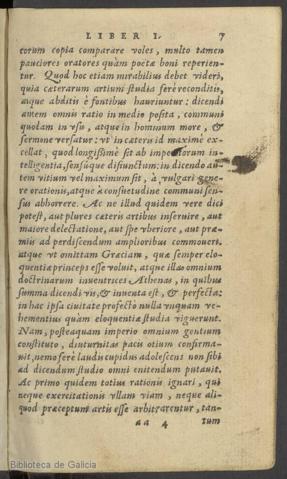 LIBER I. 7
torum copia comparare voles, multo tamen
pauciores oratores quàm poetæ boni reperien-
tur. Quod hoc etiam mirabilius debet videri,
quia cæterarum artium studia ferè reconditis,
atque abditis è fontibus hauriuntur: dicendi
autem omnis ratio in medio posita, communi
quodam in vsu, atque in hominum more, &
sermone versatur: vt in cæteris id maximè ex-
cellat, quod longissimè sit ab imperitorum in-
telligentia, sensúque disiunctum; in dicendo au-
tem vitium vel maximum sit, à vulgari gene-
re orationis, atque à consuetudine communis sen-
sus abhorrere. Ac ne illud quidem vere dici
potest, aut plures cæteris artibus inseruire, aut
maiore delectatione, aut spe vberiore, aut præ-
miis ad perdiscendum amplioribus commoueri.
atque vt omittam Græciam, quæ semper elo-
quentiæ princeps esse voluit, atque illas omnium
doctrinarum inuentrices Athenas, in quibus
summa dicendi vis, & inuenta est, & perfecta:
in hac ipsa ciuitate profecto nulla vnquam ve-
hementius quàm eloquentiæ studia viguerunt.
Nam, posteaquam imperio omnium gentium
constituto, diuturnitas pacis otium confirma-
uit, nemo ferè laudis cupidus adolescens non sibi
ad dicendum studio omni enitendum putauit.
Ac primo quidem totius rationis ignari, qui
neque exercitationis vllam viam, neque ali-
quod præceptum artis esse arbitrarentur, tan-
aa 4 tum
Biblioteca de Galicia